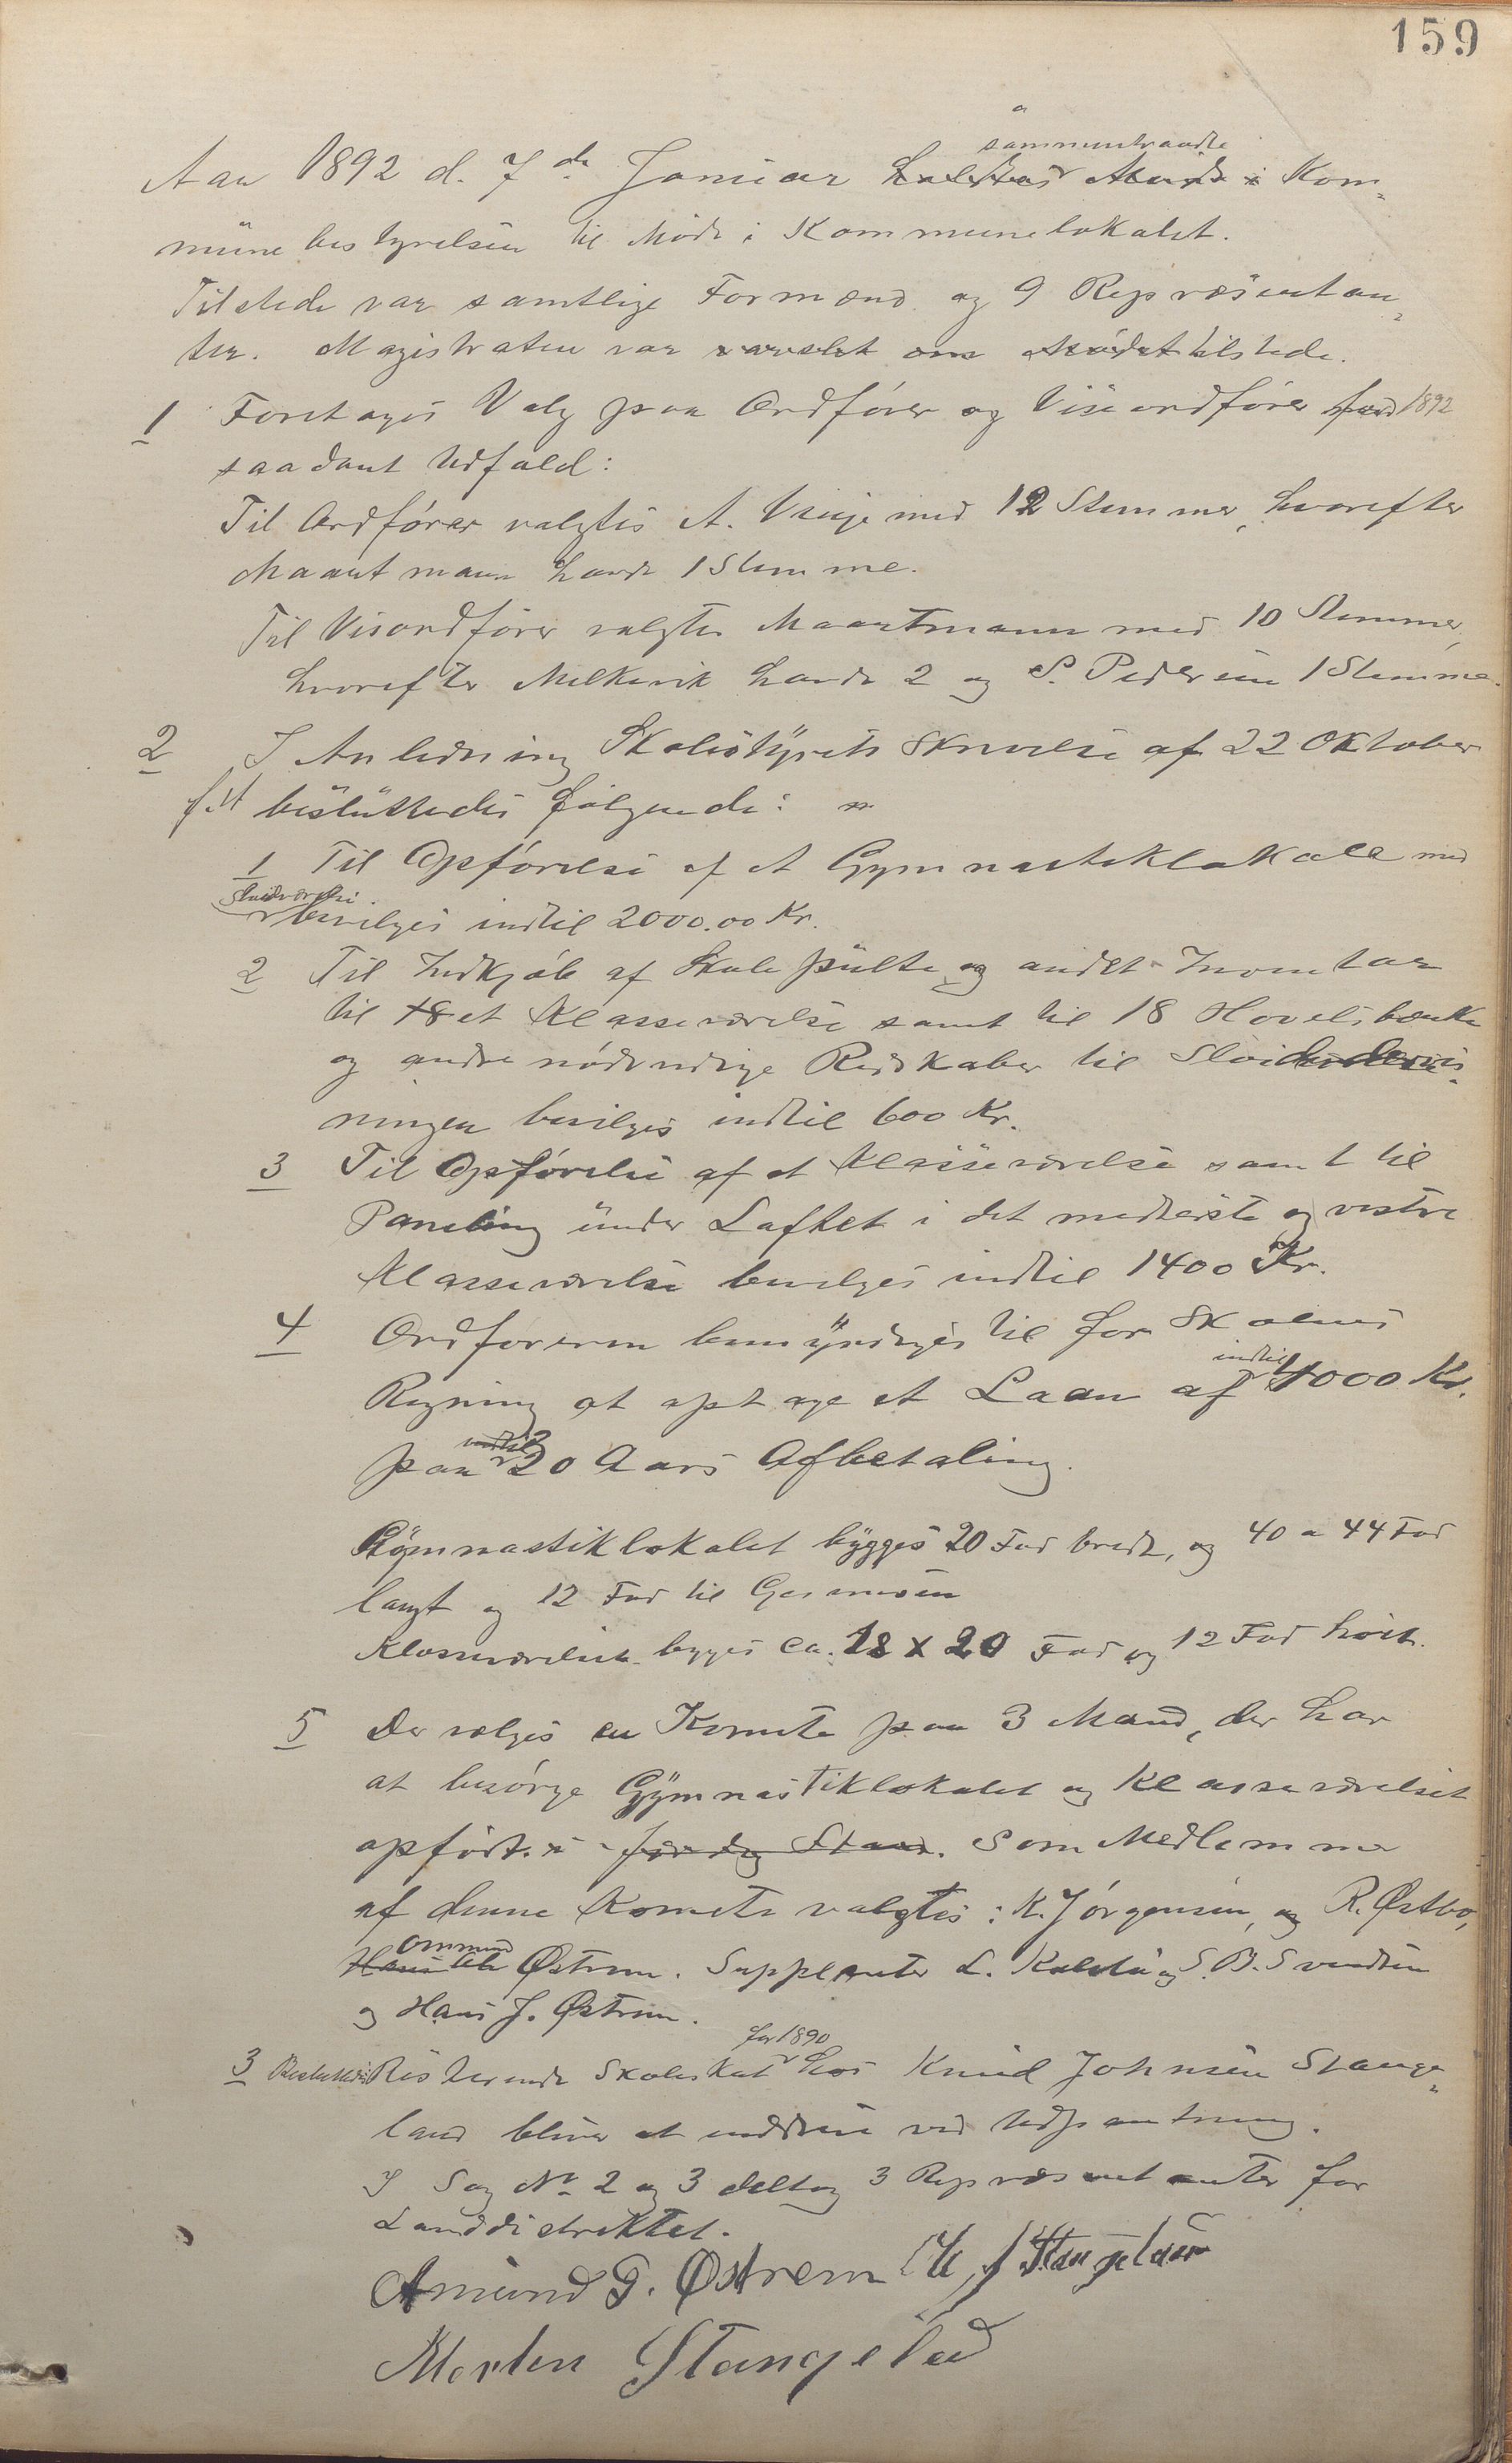 159
Aar 1892 d. 7de Januar sammentraadte Kom-
munebestyrelsen til Møde i Kommunelokalet.
Tilstede var samtlige Formænd og 9 Repræsentan-
ter. Magistraten var tilstede.
1 Foretoges Valg paa Ordfører og Viseordfører for 1892
saadant Udfald:
Til Ordfører valgtes A. Vinje med 12 Stemmer, hvorefter
Maartmann havde 1 Stemme.
Til Visordfører valgtes Maartmann med 10 Stemmer,
hvorefter Melkevik havde 2 og S. Pedersen 1 Stemme.
2 I Anledning Skolestyrets Skrivelse af 22 Oktober
f. A besluttedes følgende:
1 Til Opførelse af et Gymnastiklokale med
Sløidværelse bevilges indtil 2000.00 Kr.
2 Til Indkjøb af Skolepulte og andet Inventar
til et Klasseværelse samt til 18 Høvelbænke
og andre nødvendige Redskaber til Sløidundervis-
ningen bevilges indtil 600 Kr.
3 Til Opførelse af et Klasseværelse samt til
Paneling under Loftet i det mellerste og vestre
Klasseværelse bevilges indtil 1400 Kr.
4 Ordføreren bemyndiges til for Skolens
Regning at optage et Laan af indtil 4000 Kr.
paa 20 Aars Afbetaling.
Gymnastiklokalet bygges 20 Fod bredt, og 40 a 44 Fod
langt og 12 Fod til Gesimsen
Klasseværelset bygges ca. 18 x 20 Fod og 12 Fod høit.
5 Der vælges en Komite paa 3 Mand, der har
at besørge Gymnastiklokalet og Klasseværelset
opført. i færdig Stand. Som Medlemmer
af denne Komite valgtes: K. Jørgensen, og R. Østbø,
Ommund Østrem. Suppleanter L. og S. B. Svendsen
og Hans J. Østrem.
3 Besluttedes Resterende Skoleskat for 1890 hos Knud Johnsen Stange-
land bliver at inddrive ved Udpantning.
I Sag No 2 og 3 deltog 3 Repræsentanter for
Landdistriktet.
Amund G. Østrem K J Stangeland
Morten Stangeland